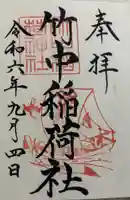 奉拝
竹中稲荷社
令和六年九月四日